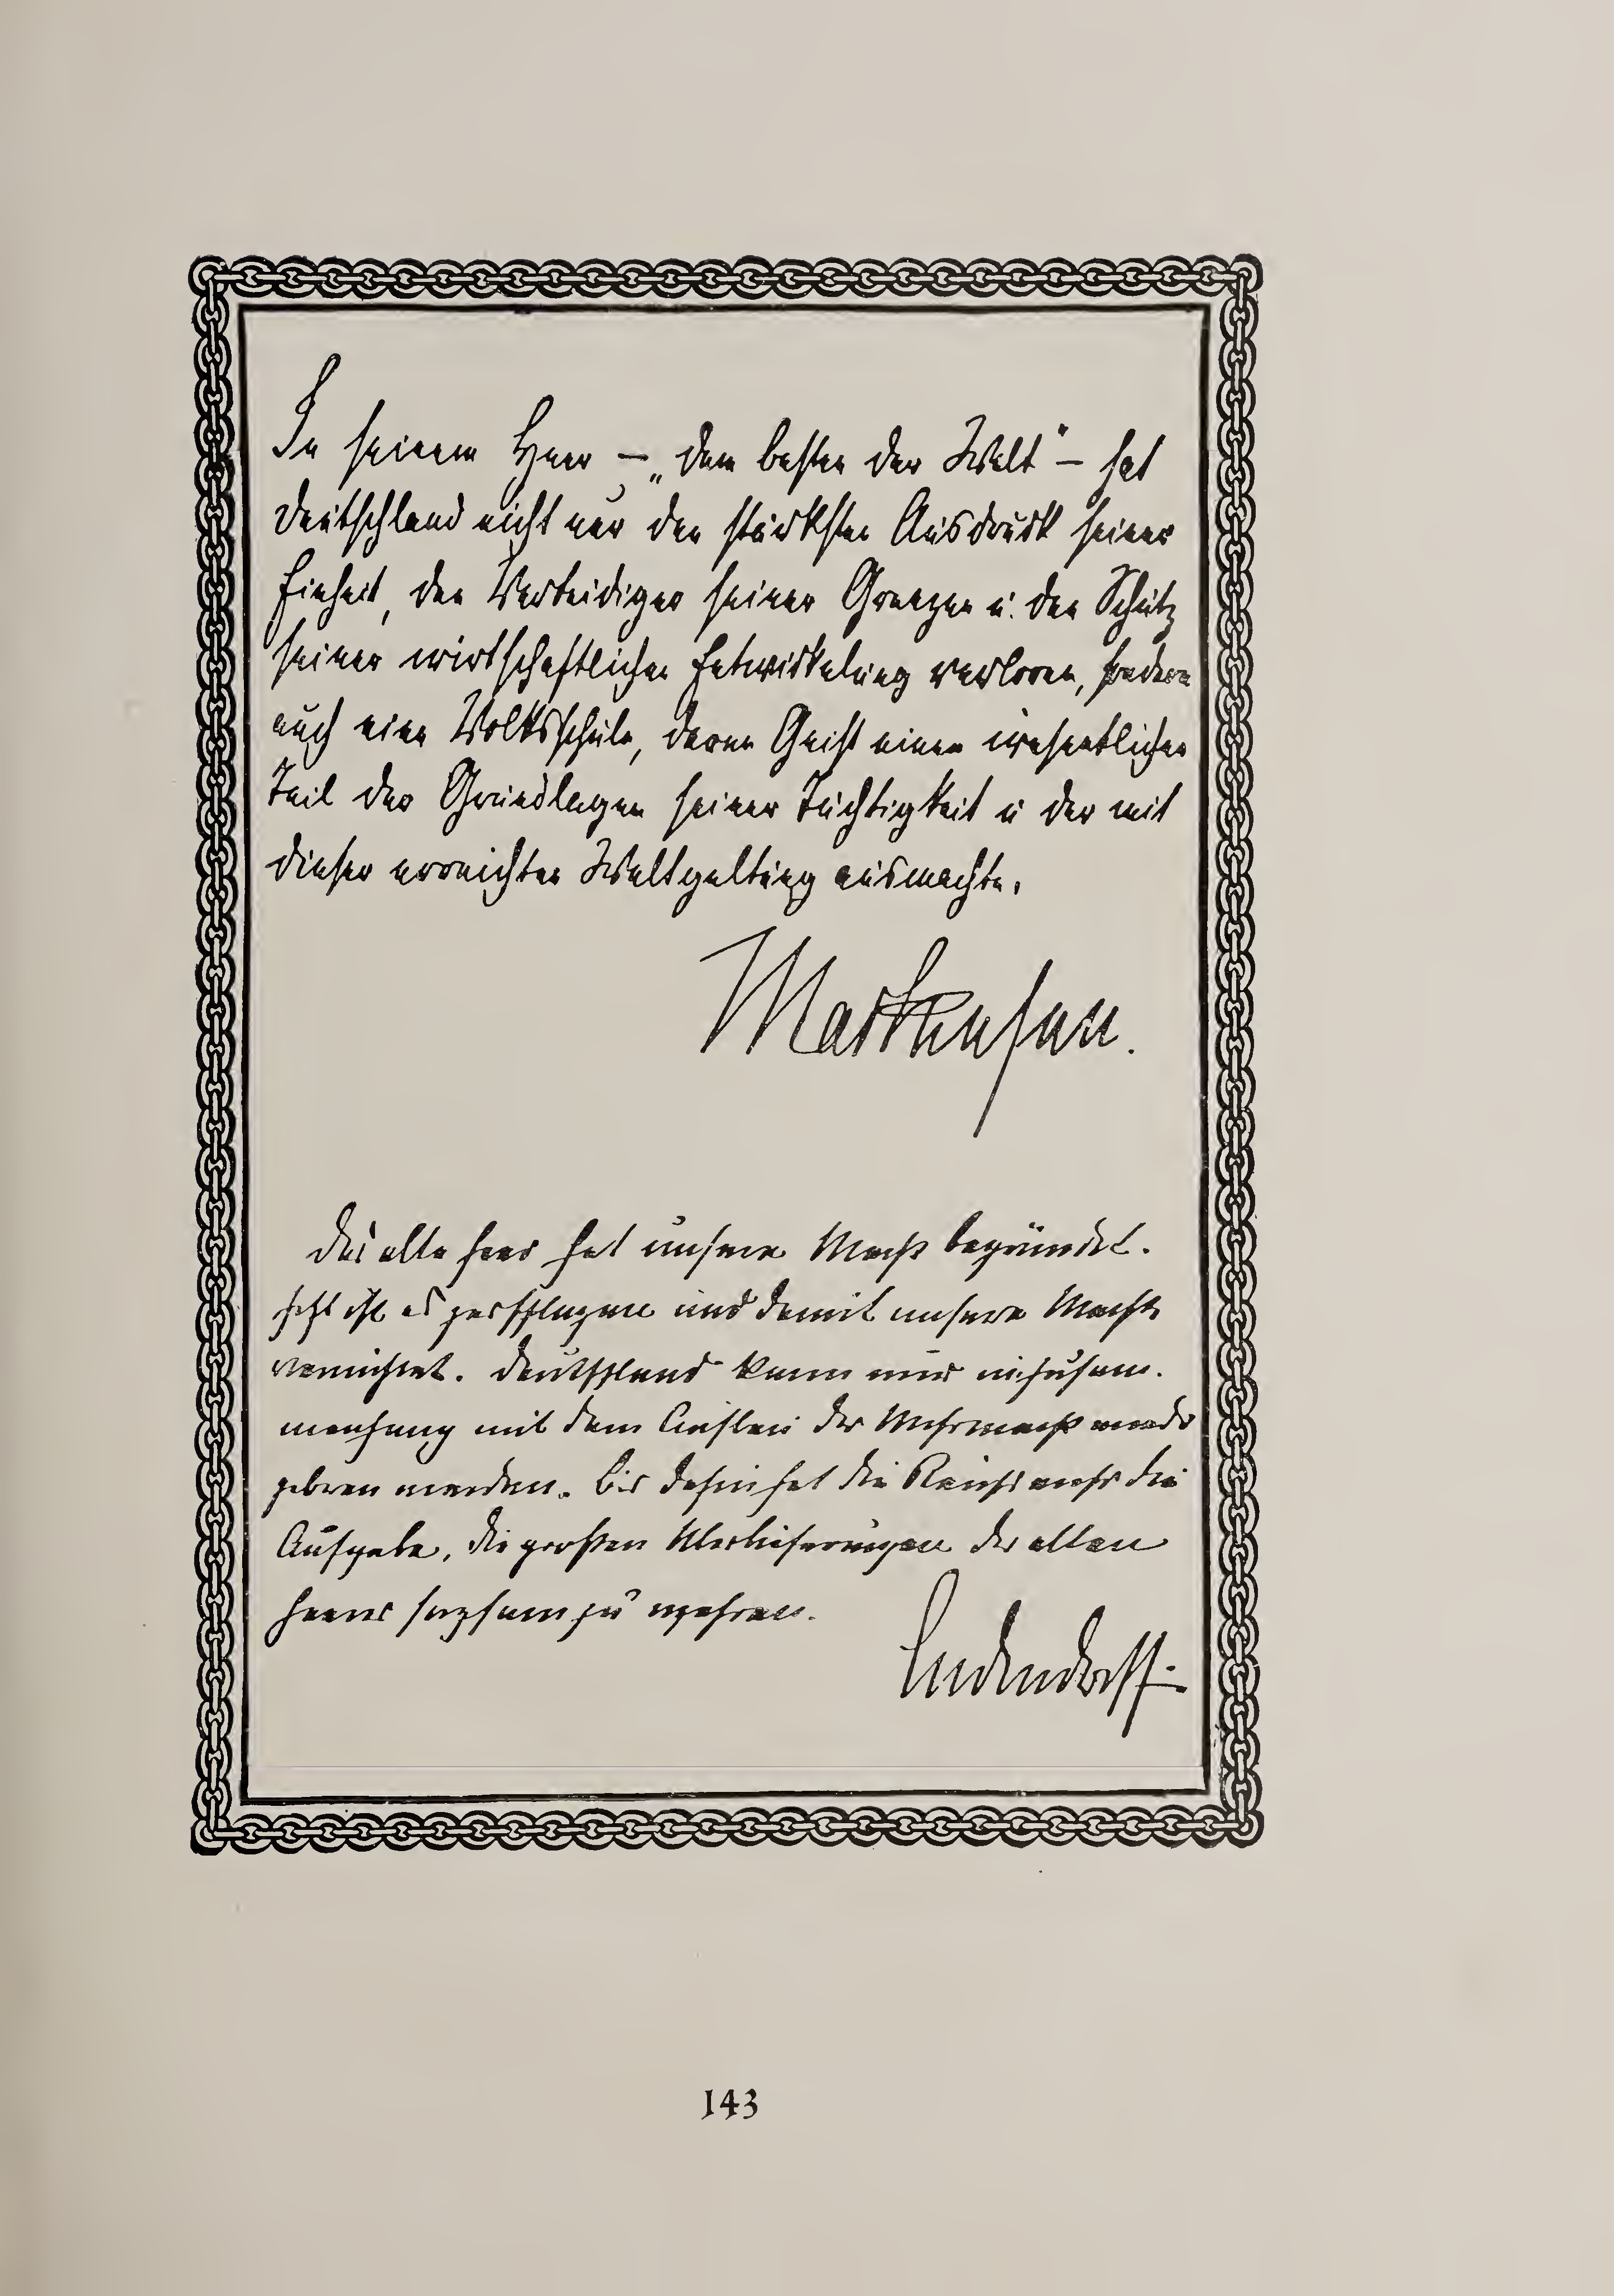 In seinem Heer – „dem besten der Welt" – hat
Deutschland nicht nur den stärksten Ausdruck seiner
Einheit, den Verteidiger seiner Grenzen u. den Schutz
seiner wirtschaftlichen Entwickelung verloren, sondern
auch eine Volksschule, deren Geist einen wesentlichen
Teil der Grundlagen seiner Tüchtigkeit u der mit
dieser erreichten Weltgeltung ausmachte.
Mackensen.
Das alte Heer hat unsere Macht begründet.
Jetzt ist es zerschlagen und damit unsere Macht
vernichtet. Deutschland kann nur im Zusam-
menhang mit dem Aufbau der Wehrmacht wieder
geboren werden. Bis dahin hat die Reichswehr die
Aufgabe, die großen Überlieferungen des alten
Heeres sorgsam zu wahren.
Ludendorff.
143